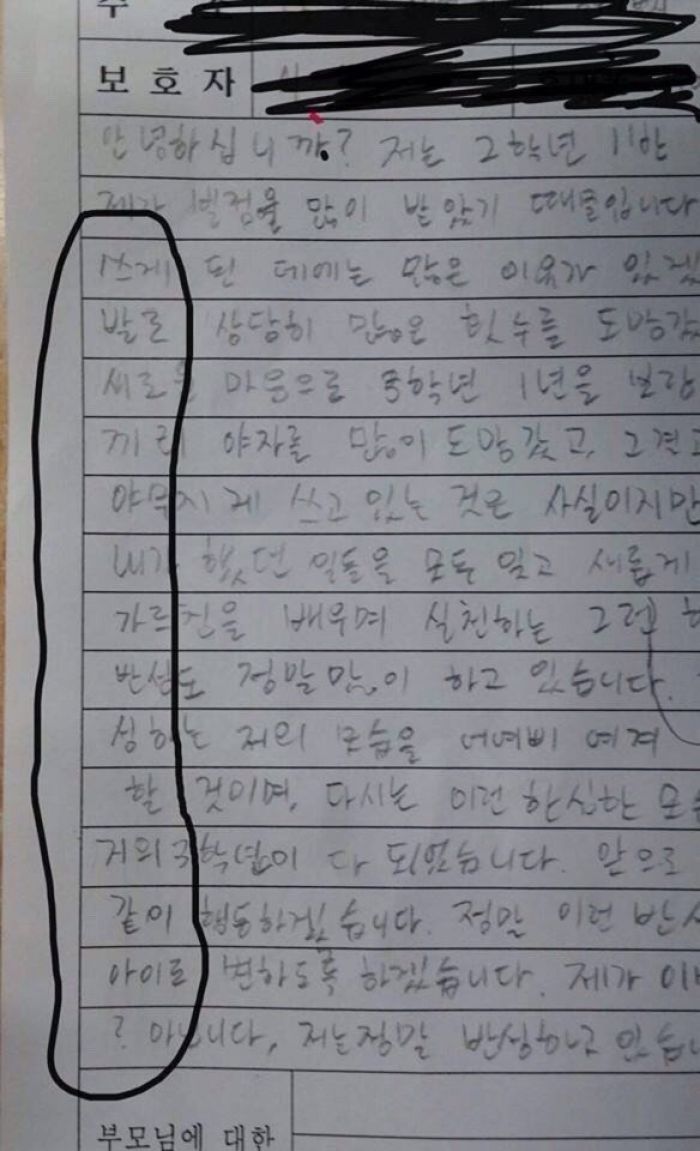 보 호 자
안녕하십니까? 저는 2학년 11한
제가 벌점을 많이 받았기 때문입니다
쓰게 된 데에는 많은 이유가 있겠
발로 상당히 많은 횟수를 도망갔
새로운 마음으로 1년을 보람
끼리 야자를 많이 도망갔고, 그
야무지게 쓰고 있는 것은 사실이지만
내가 했던 일들을 모두 잊고 새롭게
가르친을 배우며 실천하는 그런
반성도 정말 많이 하고 있습니다.
성하는 저의 모습을 어여삐 여겨
할 것이며, 다시는 이런 한심한 모
거의 다 되었습니다. 앞으로
같이 행동하겠습니다. 정말 이런 반
아이로 변하도록 하겠습니다. 제가 이
? 아닙니다, 저는 정말 반성하고 있습니
부모님에 대한